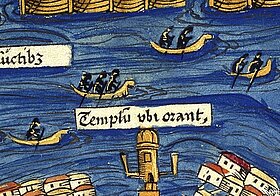 uctibz
Templũ vbi orant,